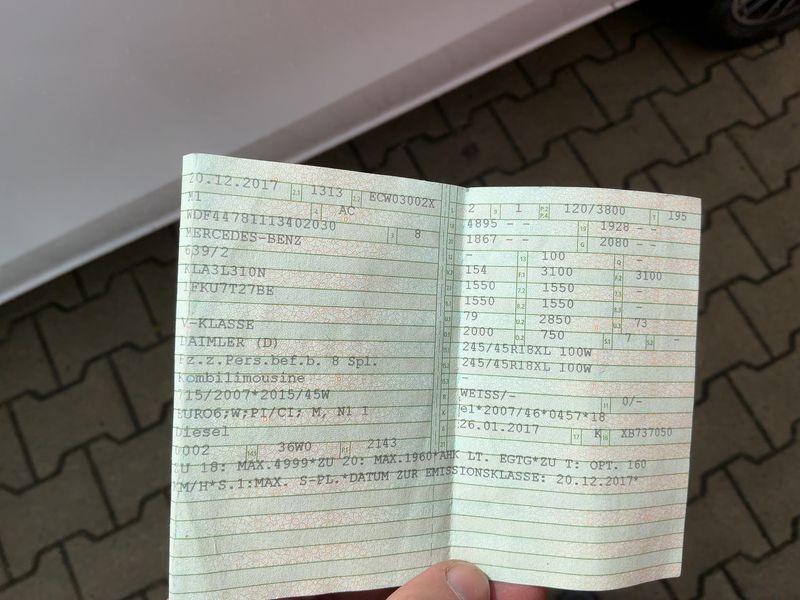 20.12.2017 2.1 1313 2.2 ECW03002X
M1 4 AC
WDF44781113402030 3 8
MERCEDES-BENZ
639/2
KLA3L310N
1FKU7T27BE
V-KLASSE
DAIMLER (D)
Fz.z.Pers.bef.b. 8 Spl.
Kombilimousine
715/2007*2015/45W
EURO6;W;PI/CI; M, N1 I
Diesel
0002 14.1 36W0 P.1 2143
ZU 18: MAX.4999*ZU 20: MAX.1960*AHK LT. EGTG*ZU T: OPT. 160
KM/H*S.1:MAX. S-PL.*DATUM ZUR EMISSIONSKLASSE: 20.12.2017*
L 2 9 1 P.2 P.4 120/3800 T 195
18 4895 - - 19 1928 - -
20 1867 - - G 2080 - -
- 13 100 Q -
V.7 154 F.1 3100 F.2 3100
7.1 1550 7.2 1550 7.3 -
8.1 1550 8.2 1550 8.3 -
U.1 79 U.2 2850 U.3 73
O.1 2000 O.2 750 S.1 7 S.2 -
245/45R18XL 100W
245/45R18XL 100W
-
WEISS/- 11 0/-
e1*2007/46*0457*18
26.01.2017 17 K 16 XB737050